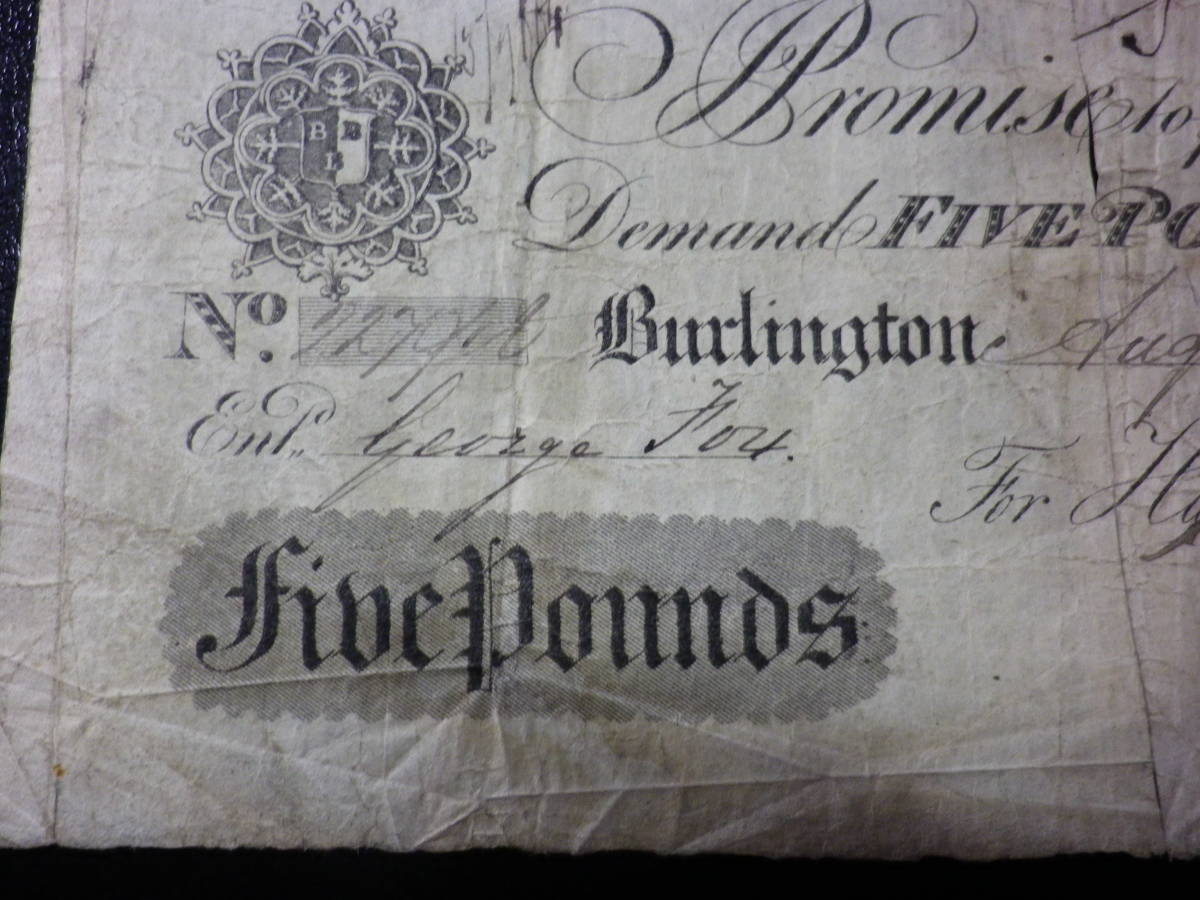 B B
B
Promise to
Demand FIVE PO
No. Burlington Aug
Entd. George Fox.
For
Five Pounds